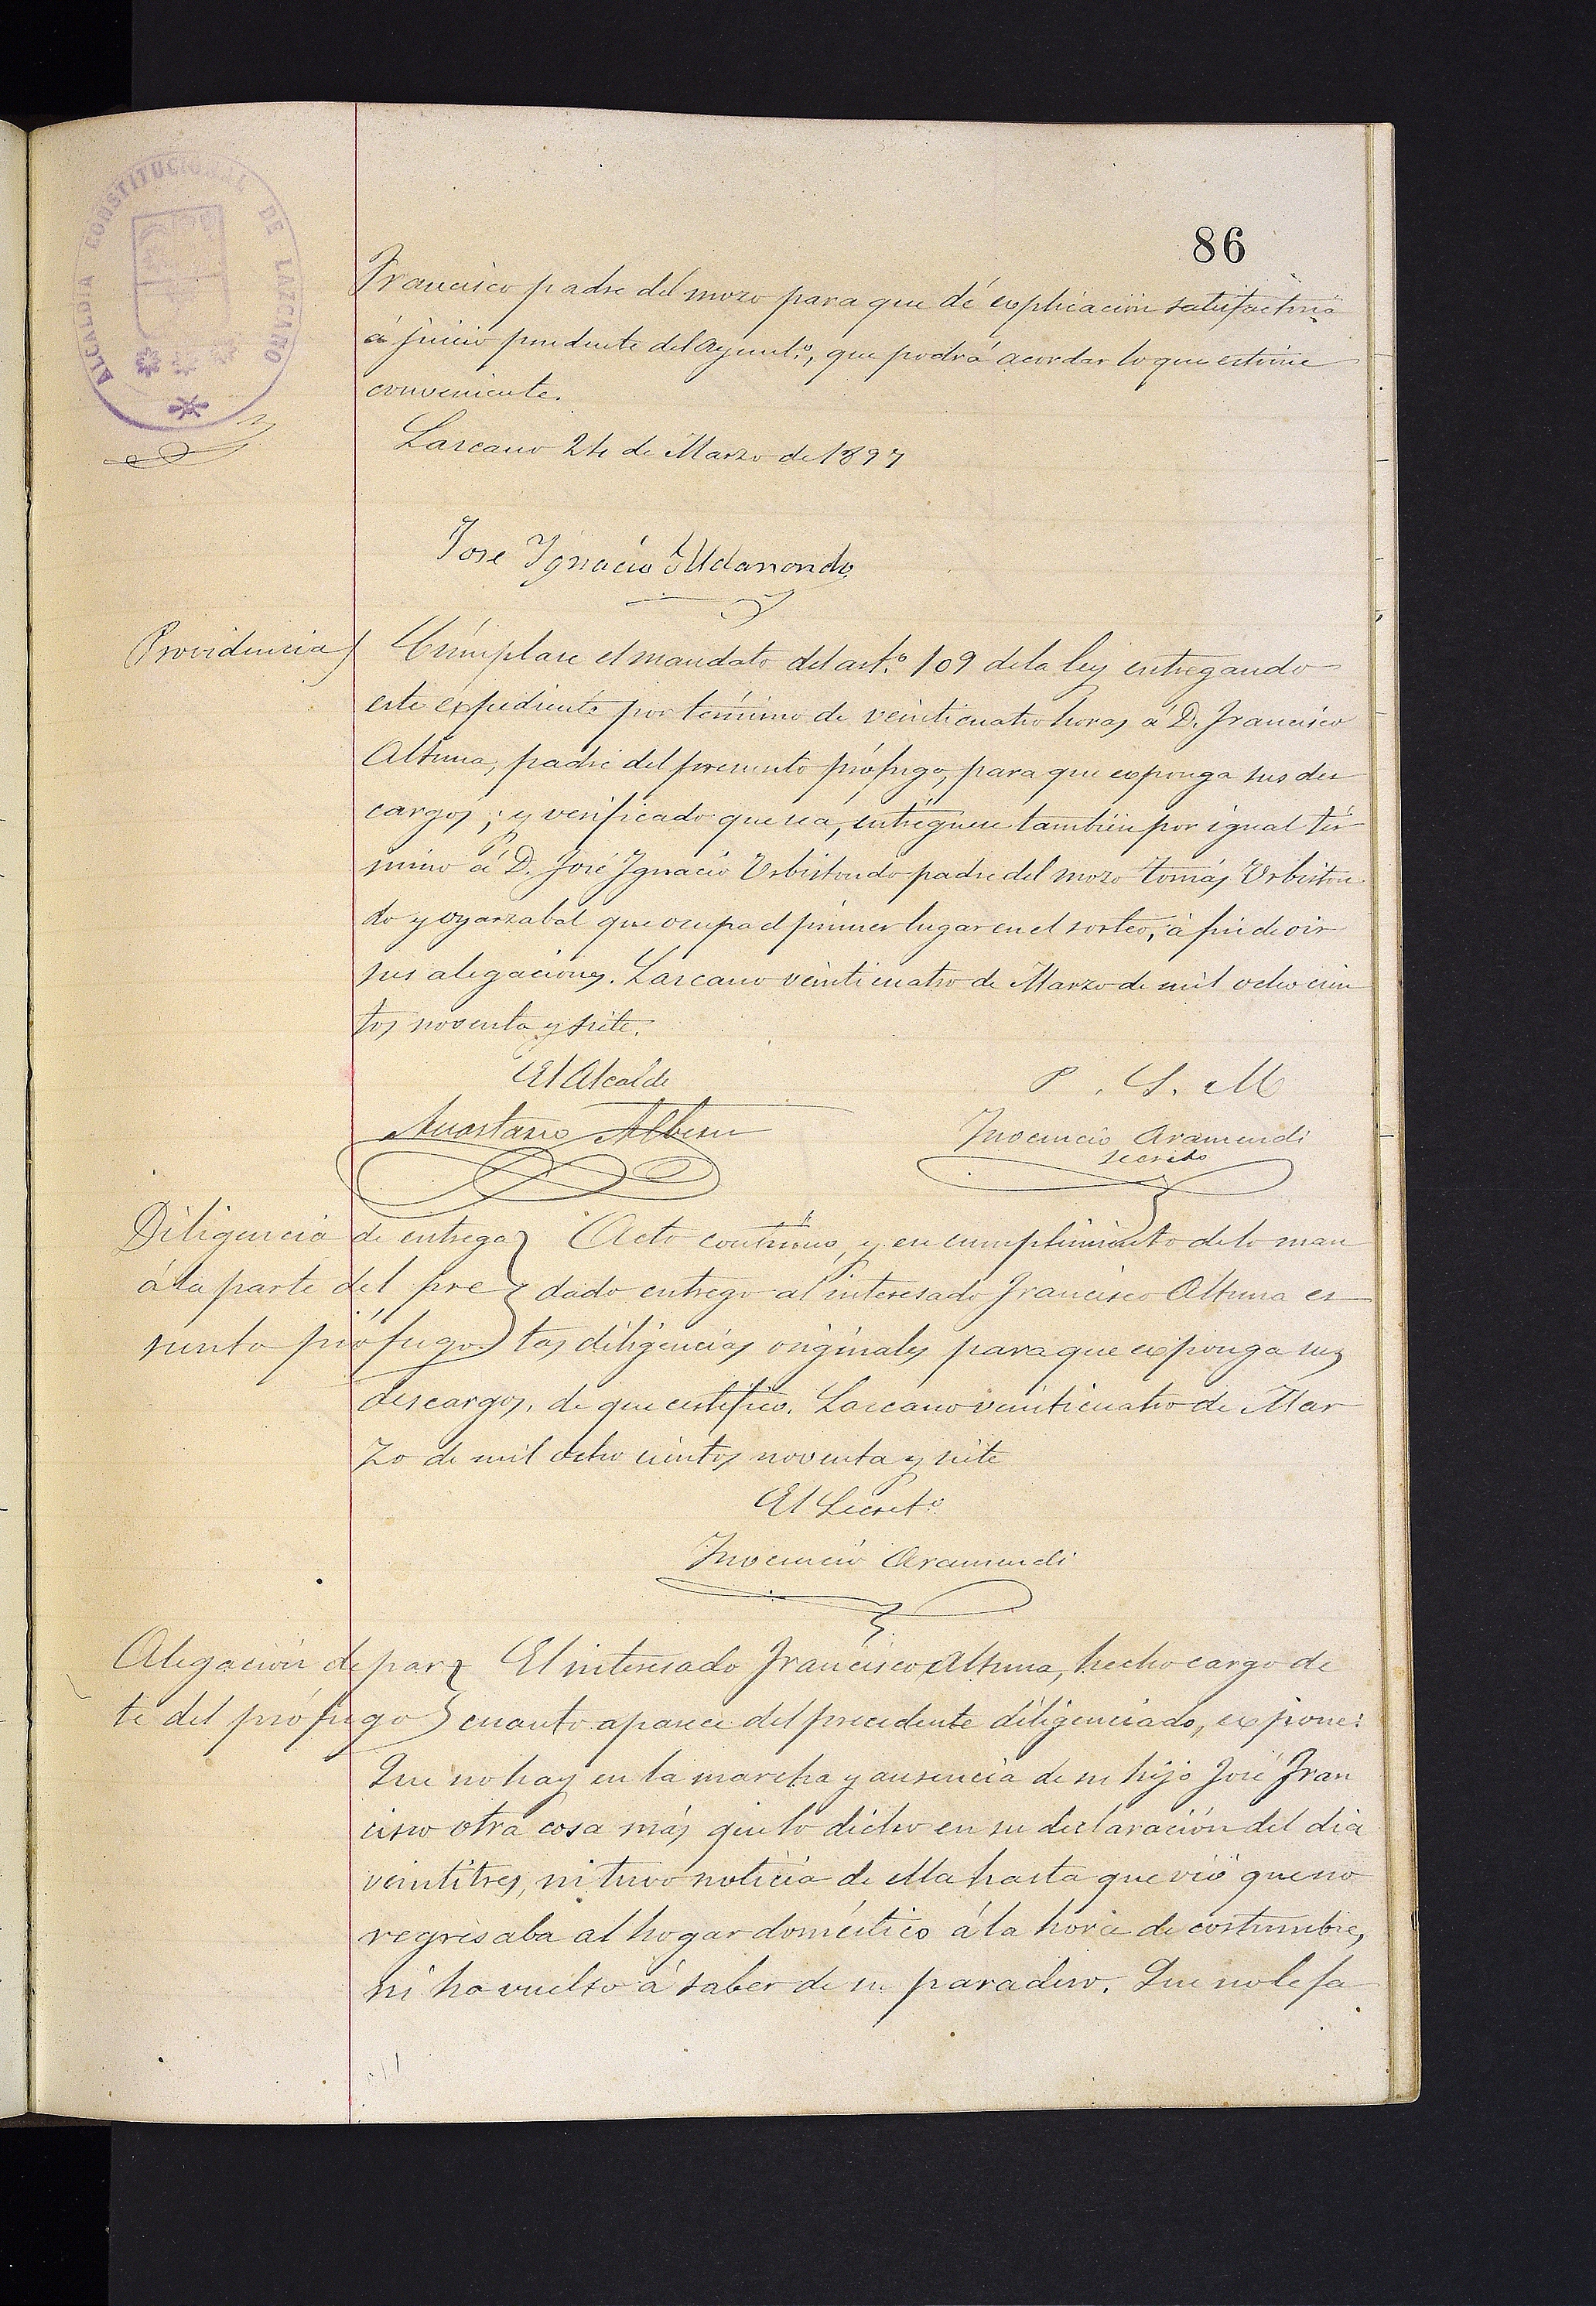 ALCALDIA CONSTITUCIONAL DE LAZCANO
86
Francisco padre del mozo para que dé explicación satisfactoria
á juicio prudente del Ayunt.º, que podrá acordar lo que estime
conveniente.
Lazcano 24 de Marzo de 1897
Jose Ygnacio Aldanondo
Providencia) Cúmplase el mandato del art.º 109 de la ley entregando
este expediente por término de veinticuatro horas á D. Francisco
Altuna, padre del presunto prófugo, para que exponga sus des
cargos; y verificado que sea, entréguese también por igual tér
mino á D. José Ygnacio Urbistondo padre del mozo Tomás Urbiston
do y oyarzabal que ocupa el primer lugar en el sorteo, á fin de oir
sus alegaciones. Lazcano veinticuatro de Marzo de mil ochocien
tos noventa y siete.
El Alcalde
P. S. M
Anastasio Albisu
Inocencio Aramendi
secreto
Diligencia de entrega
á la parte del pre
sunto prófugo
Acto contínuo, y en cumplimiento de lo man
dado entrego al interesado Francisco Altuna es
tas diligencias originales para que exponga sus
descargos, de que certifico. Lazcano veinticuatro de Mar
zo de mil ochocientos noventa y siete
El Secret.º
Inocencio Aramendi
Alegación de par
te del prófugo
El interesado Francisco Altuna, hecho cargo de
cuanto aparece del precedente diligenciado, expone:
Que no hay en la marcha y ausencia de su hijo José Fran
cisco otra cosa más que lo dicho en su declaración del dia
veintitres, ni tuvo noticia de ella hasta que vió que no
regresaba al hogar doméstico á la hora de costumbre,
ni ha vuelto á saber de su paradero. Que no le fa